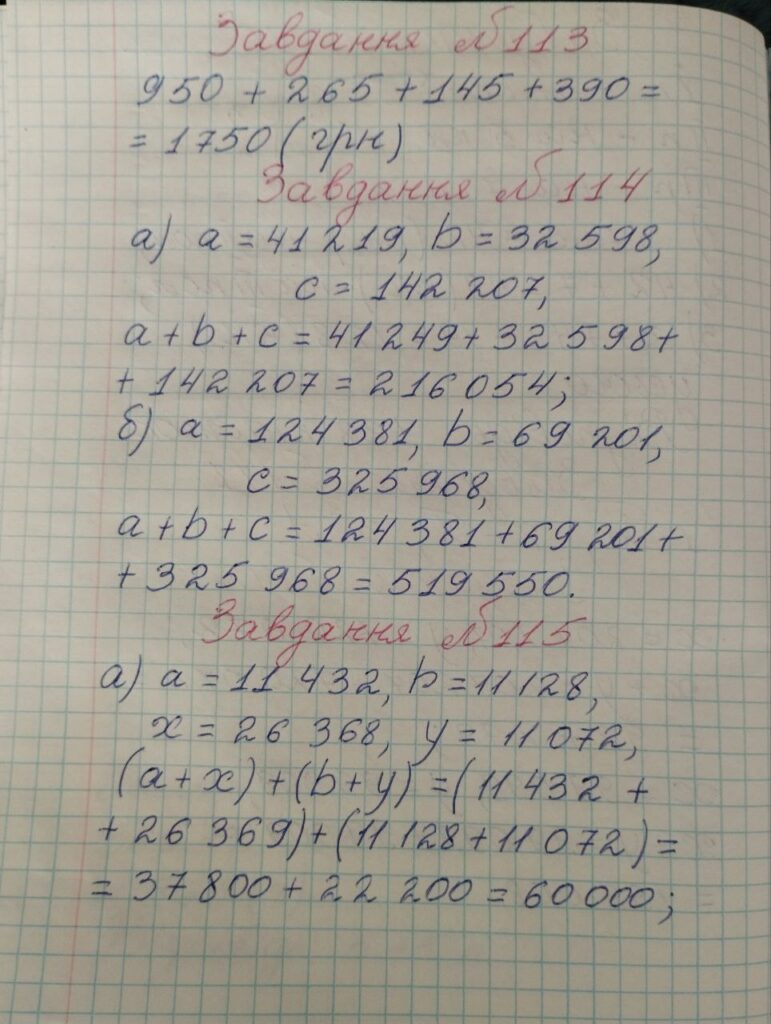 Завдання №113
950 + 265 + 145 + 390 =
= 1750 (грн)
Завдання №114
а) a = 41 219, b = 32 598,
c = 142 207,
a + b + c = 41 249 + 32 598 +
+ 142 207 = 216 054;
б) a = 124 381, b = 69 201,
c = 325 968,
a + b + c = 124 381 + 69 201 +
+ 325 968 = 519 550.
Завдання №115
а) a = 11 432, b = 11 128,
x = 26 368, y = 11 072,
(a + x) + (b + y) = (11 432 +
+ 26 369) + (11 128 + 11 072) =
= 37 800 + 22 200 = 60 000;